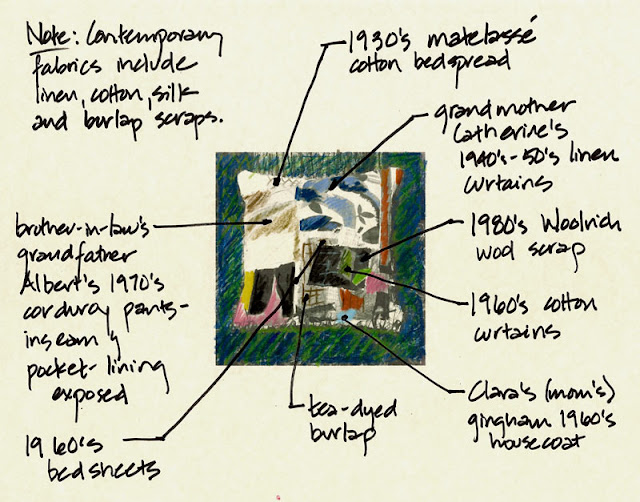 Note: Contemporary
fabrics include
linen, cotton, silk
and burlap scraps.
1930's matelassé
cotton bedspread
grandmother
Catherine's
1940's-50's linen
curtains
brother-in-law's
grandfather
Albert's 1970's
corduroy pants-
inseam &
pocket-lining
exposed
1980's Woolrich
wool scrap
1960's cotton
curtains
Clara's (mom's)
gingham 1960's
housecoat
tea-dyed
burlap
1960's
bedsheets